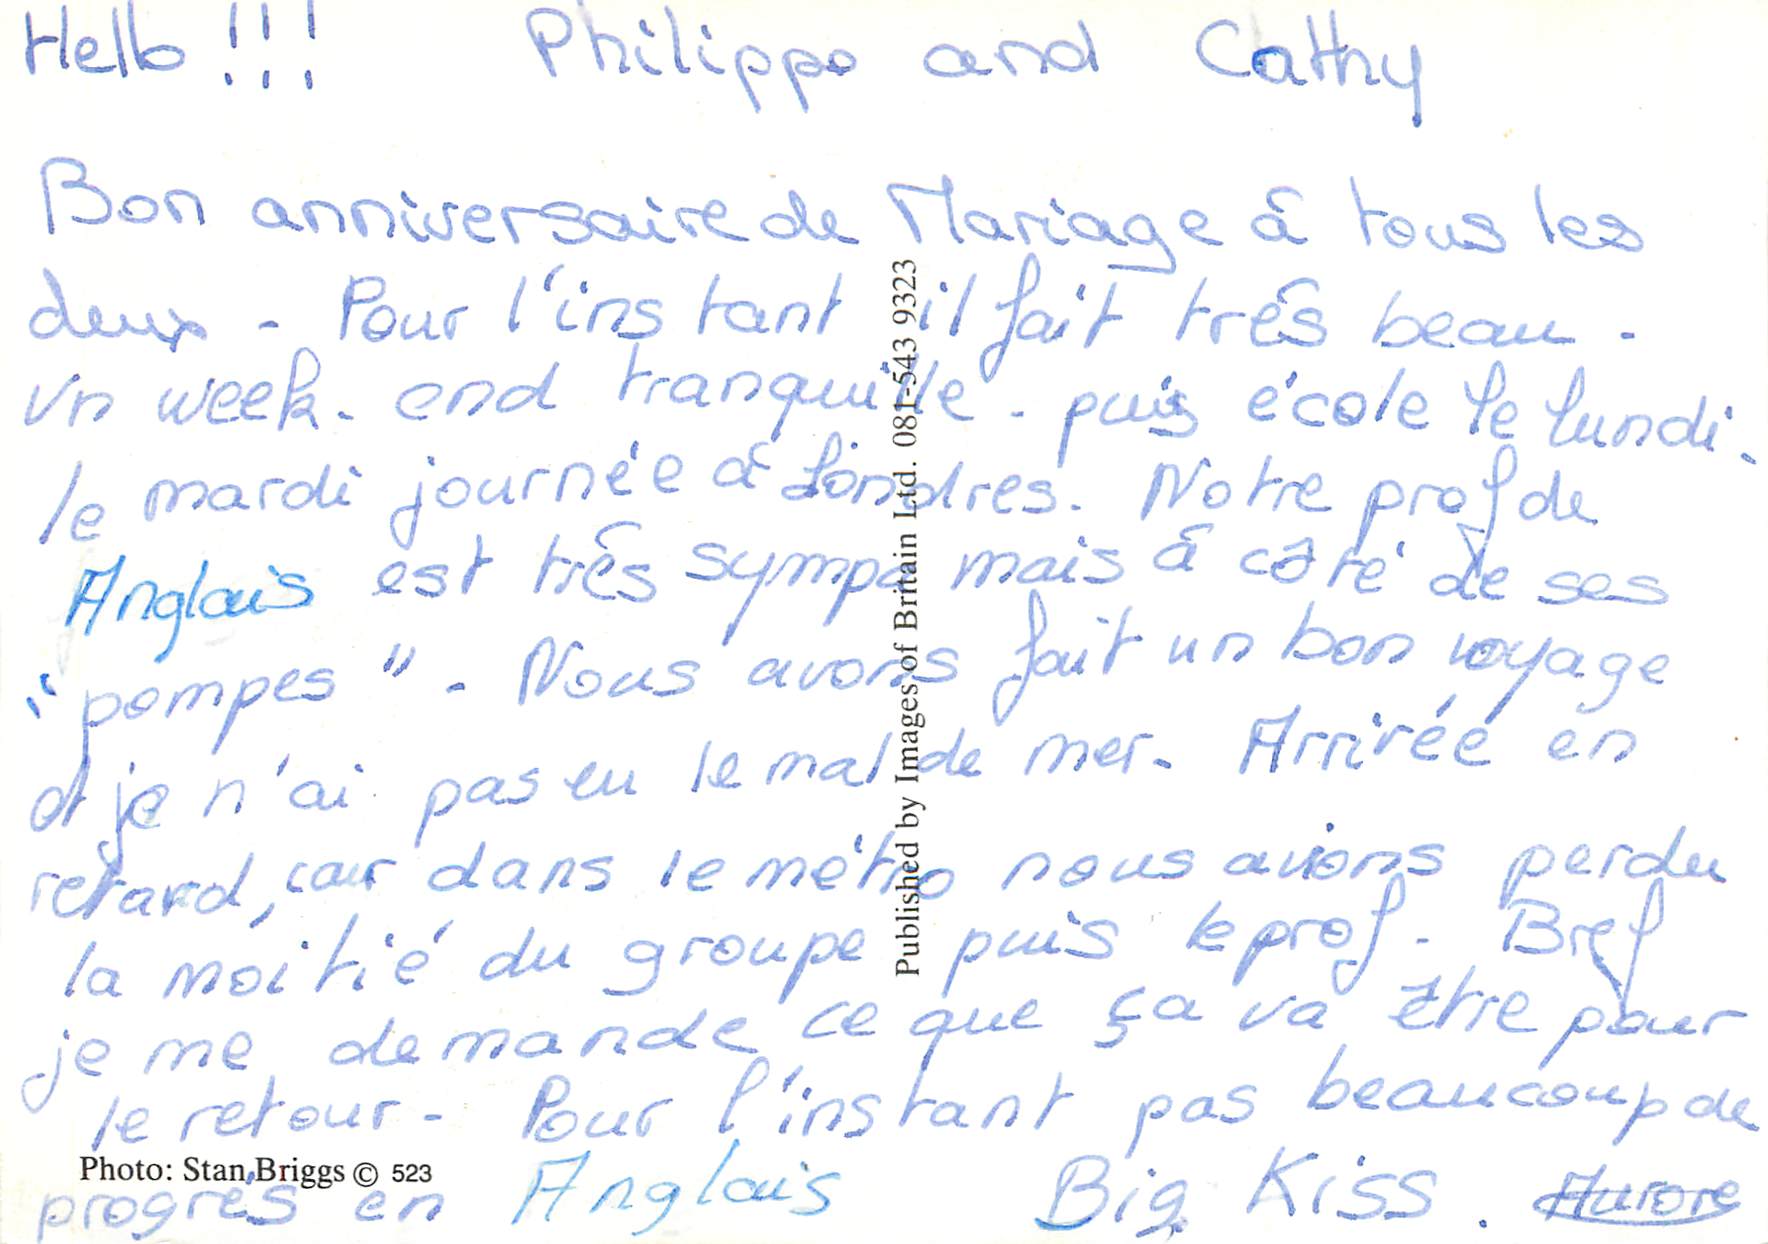 Hello !!! Philippe and Cathy
Bon anniversaire de Mariage à tous les
deux - Pour l'instant il fait très beau -
Un week-end tranquille - puis école le lundi.
le mardi journée à Londres. Notre prof de
Anglais est très sympa mais à côté de ses
"pompes" - Nous avons fait un bon voyage
et je n'ai pas eu le mal de mer - Arrivée en
retard, car dans le métro nous avions perdu
la moitié du groupe puis le prof - Bref
je me demande ce que ça va être pour
le retour - Pour l'instant pas beaucoup de
progrès en Anglais Big Kiss. Aurore
Photo: Stan Briggs © 523
Published by Images of Britain Ltd. 081-543 9323